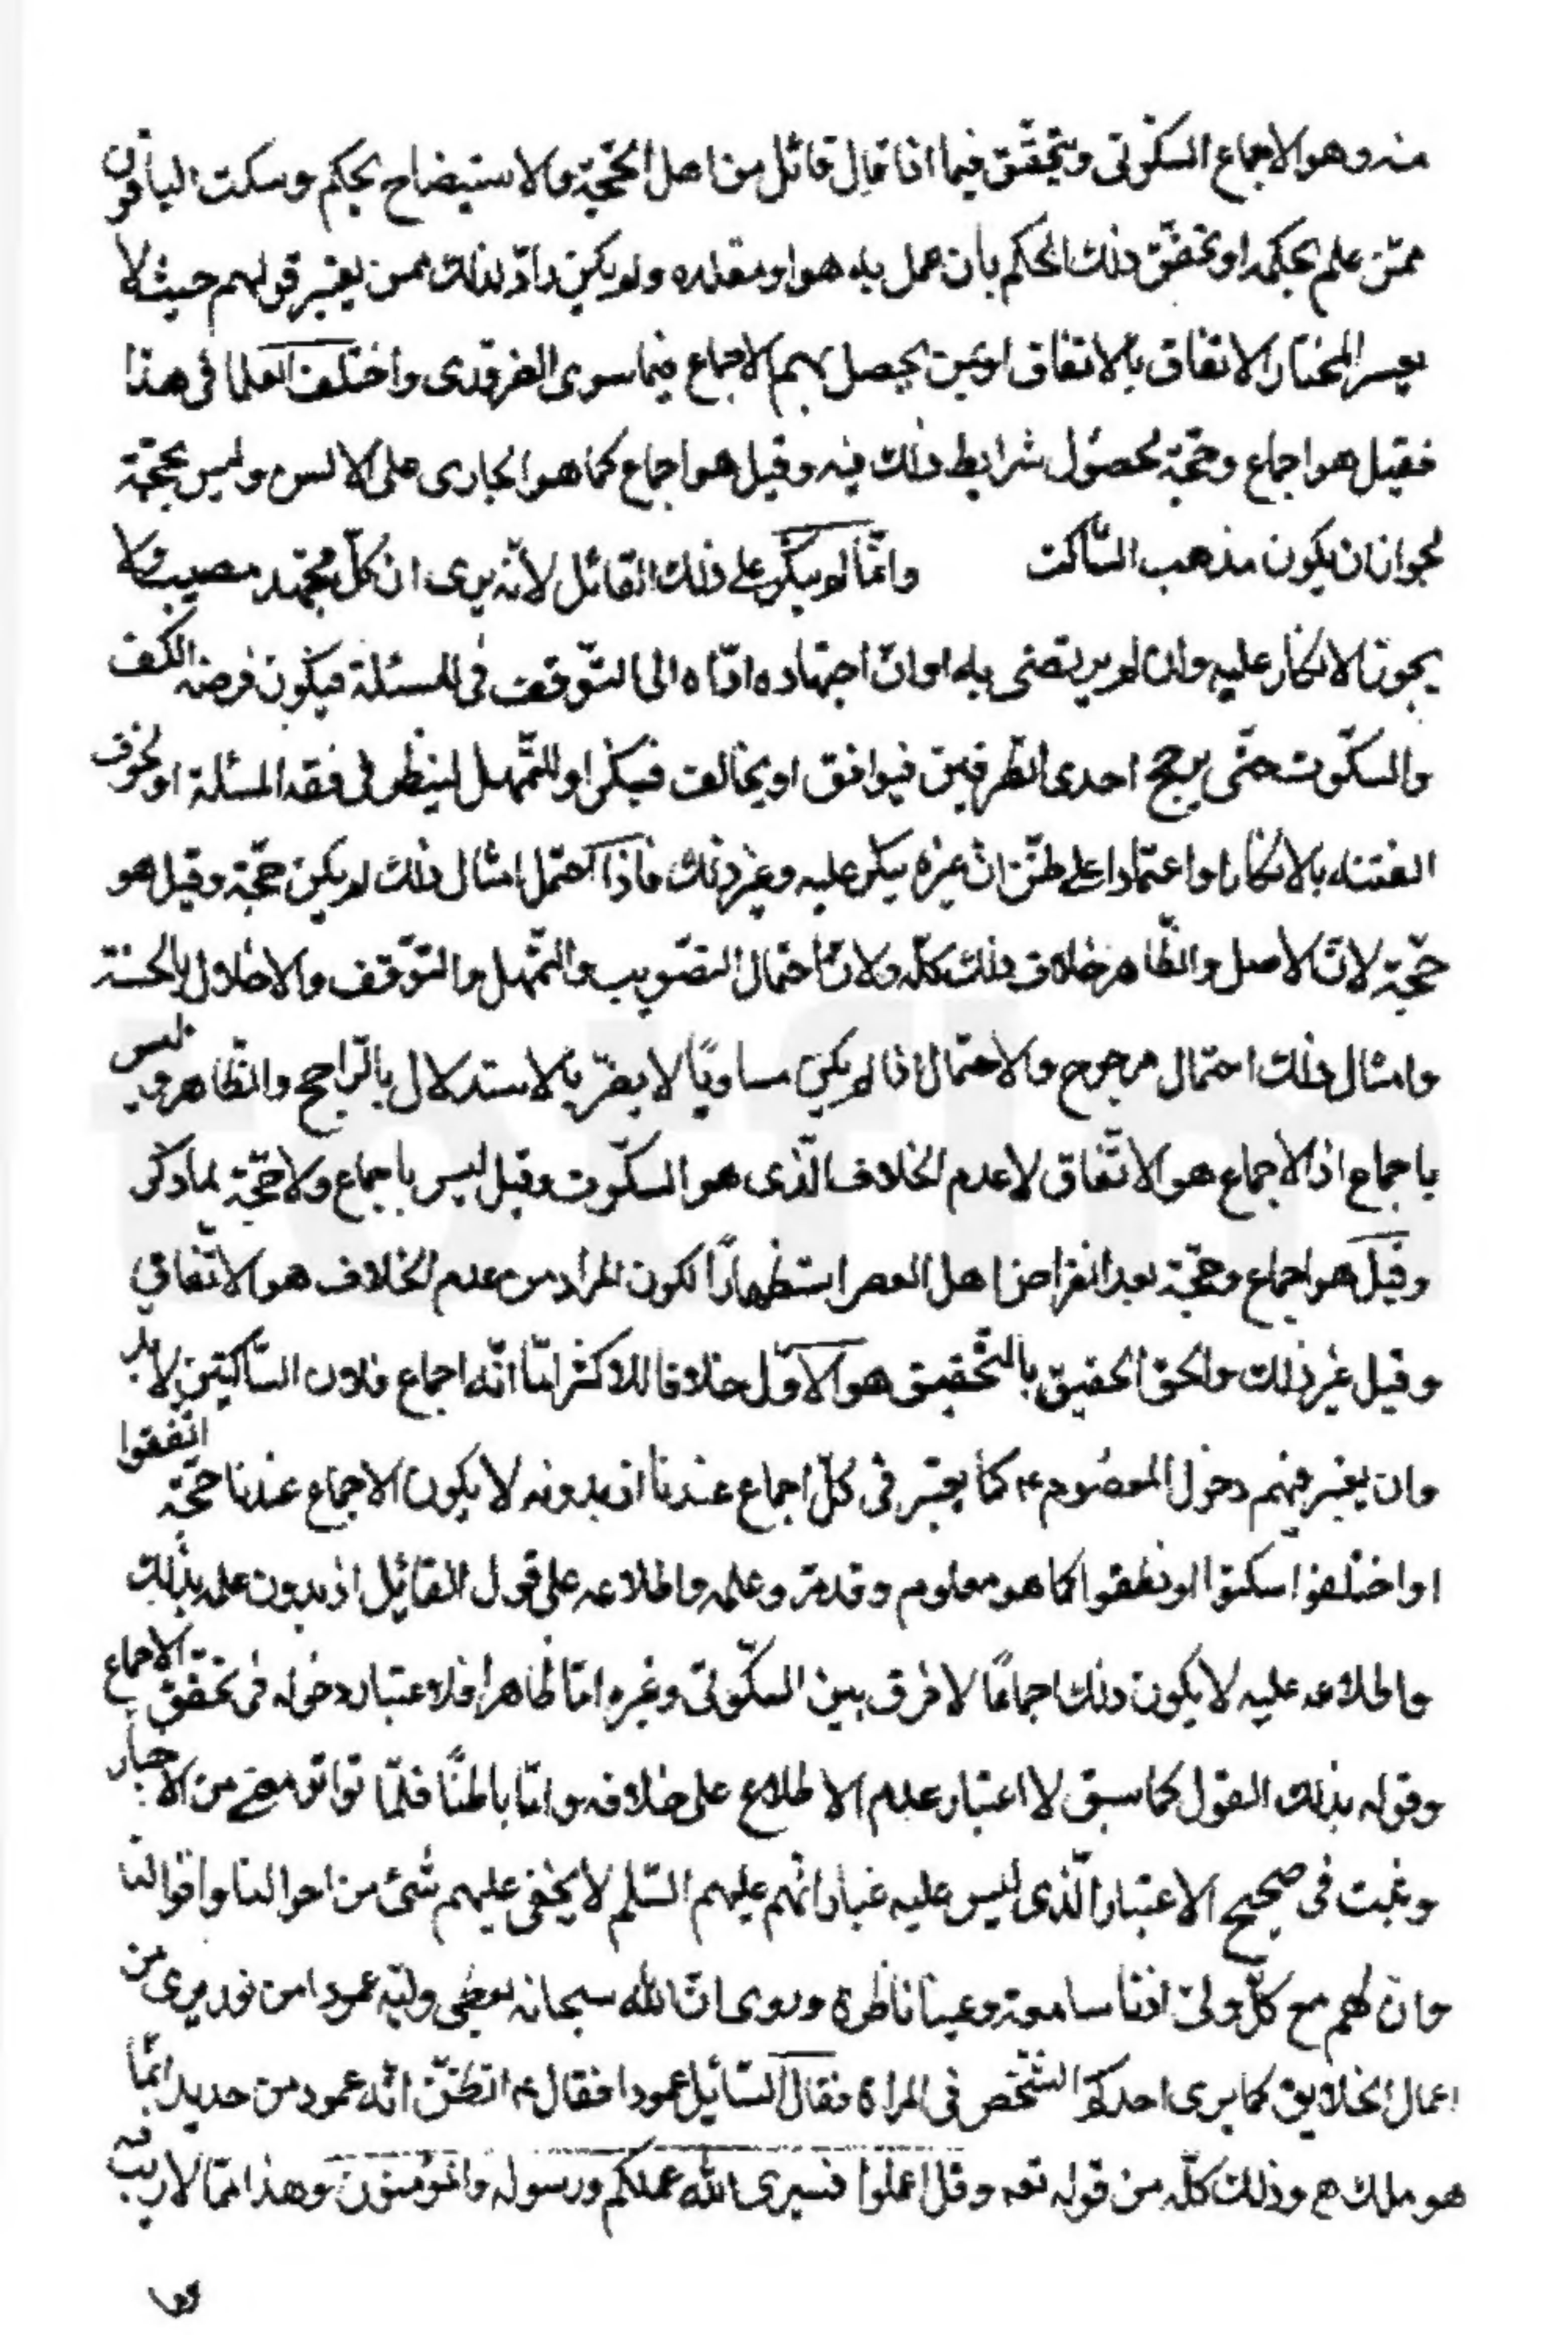 منه وهو الاجماع السكّوتى ويتحقّق فيما اذا قال قائل من اهل الحّجيّة والاستيضاح بحكم وسكت الباقون
ممّن علم بحكمه او تحقّق ذلك الحكم بان عمل به هو او مقلده ولم يكن رادّ لذلك ممن يعتبر قولهم حيث لا
يعسر المختار الاتفاق بالاتفاق او بمن يحصل بهم الاجماع فيما سوى الضرورى واختلف العلما فى هذا
فقيل هو اجماع وحجّة لحصول شرايط ذلك فيه وقيل هو اجماع كما هو الجارى على الالسن وليس بحجّة
لجواز ان يكون مذهب السّاكت وانّما لم ينكر على ذلك القائل لانّه يرى ان كلّ مجتهد مصيب ولا
يجوز الانكار عليه وان لم يرتضى به او انّ اجتهاده ادّاه الى التّوقف فى المسئلة فيكون فرضه الكف
والسكّوت حتّى يرجح احدى الطّرفين فيوافق او يخالف فينكر او للتّمهل لينظر فى فقد المسئلة او لخوف
الفتنه بالانكار او اعتمادا على ظنّ انّ غيره ينكر عليه وغير ذلك فاذا احتمل امثال ذلك لم يكن حجّة وقيل هو
حجّة لانّ الاصل والظّاهر خلاف ذلك كلّه ولانّ احتمال التصّويب والتّمهل والتوّقف والاخلال بالحسنة
وامثال ذلك احتمال مرجوح والاحتمال اذا لم يكن مساويًا لا يضرّ بالاستدلال بالرّاجح والظّاهر وليس
باجماع اذ الاجماع هو الاتّفاق لا عدم الخلاف الّذى هو السكّوت وقيل ليس باجماع ولا حجّة لما ذكر
وقيل هو اجماع وحجّة بعد انقراض اهل العصر استظهارًا لكون المراد من عدم الخلاف هو الاتّفاق
وقيل غير ذلك والحق الحقيق بالتّحقيق هو الاوّل خلافا للاكثر امّا انّه اجماع فلان السّاكتين لا بد
وان يعتبر فيهم دخول المعصوم ع كما يعتبر فى كلّ اجماع عندنا اذ بدونه لا يكون الاجماع عندنا حجّة اتّفقوا
او اختلفوا سكتوا او نطقوا كما هو معلوم وقد مرّ وعلمه واطلاعه على قول القائل اذ بدون علمه بذلك
واطلاعه عليه لا يكون ذلك اجماعًا لا فرق بين السكّوتى وغيره امّا ظاهرا فلاعتبار دخوله فى تحقّق الاجماع
وقوله بذلك القول كما سبق لا اعتبار عدم الاطلاع على خلافه وامّا باطنًا فلمّا تواتر معنى من الاخبار
وثبت فى صحيح الاعتبار الّذى ليس عليه غبار انّهم عليهم السّلم لا يخفى عليهم شئ من احوالنا واقوالنا
وان لهم مع كلّ ولىّ اذنا سامعة وعينا ناظرة وروى انّ الله سبحانه يعطى وليّه عمودا من نور يرى من
اعمال الخلايق كما يرى احدكم الشّخص فى المراة فقال السّائل عمودا فقال ع اتظنّ انّه عمود من حديد انّما
هو ملك ع وذلك كلّه من قوله تعه وقل اعملوا فسيرى الله عملكم ورسوله والمؤمنون وهذا ممّا لا ريب فيه